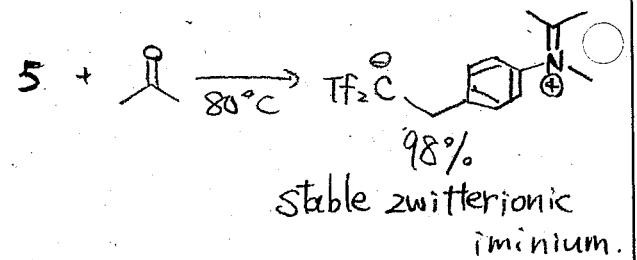 5 + O
80°C
Tf₂C⊖ N ⊕
98%
stable zwitterionic
iminium.